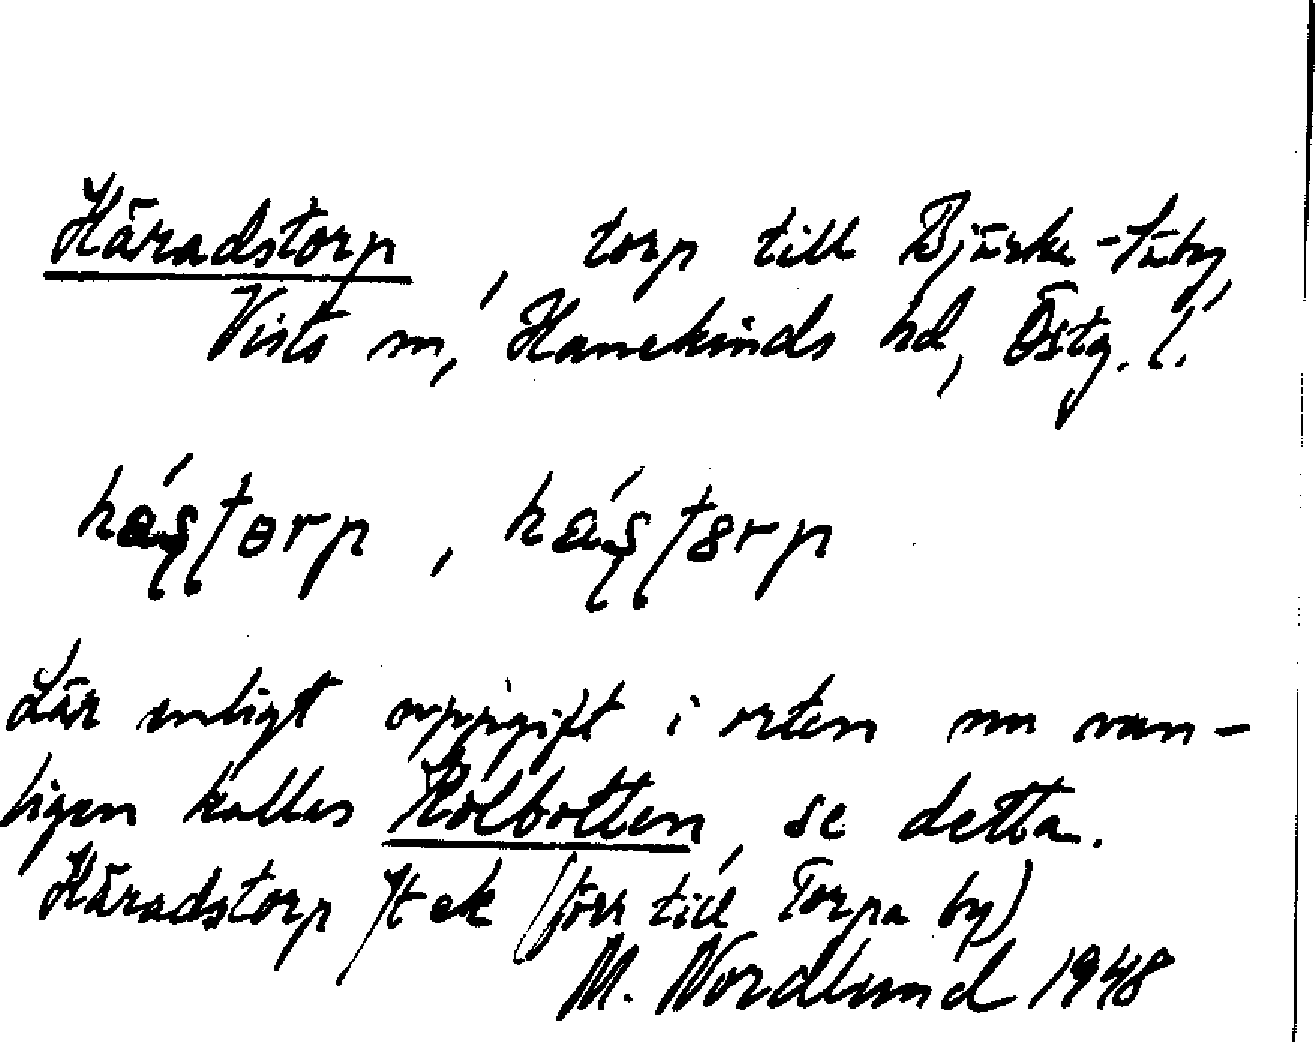 Häradstorp, torp till Bjärka-Säby,
Vists sn, Hanekinds hd, Östg. l.
Lär enligt uppgift i orten nu van-
ligen kallas Kolbotten, se detta.
Häradstorp Jt ek (förr till Torpa by)
M. Nordlund 1948